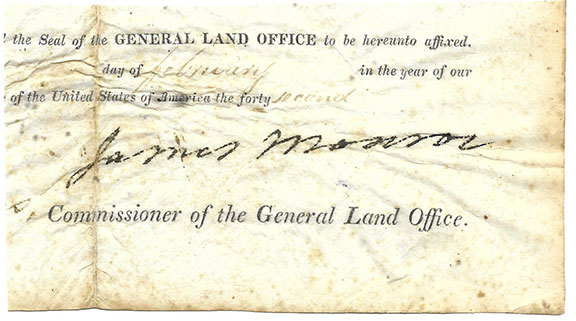 the Seal of the GENERAL LAND OFFICE to be hereunto affixed.
day of february in the year of our
of the United States of America the forty second
James Monroe
Commissioner of the General Land Office.